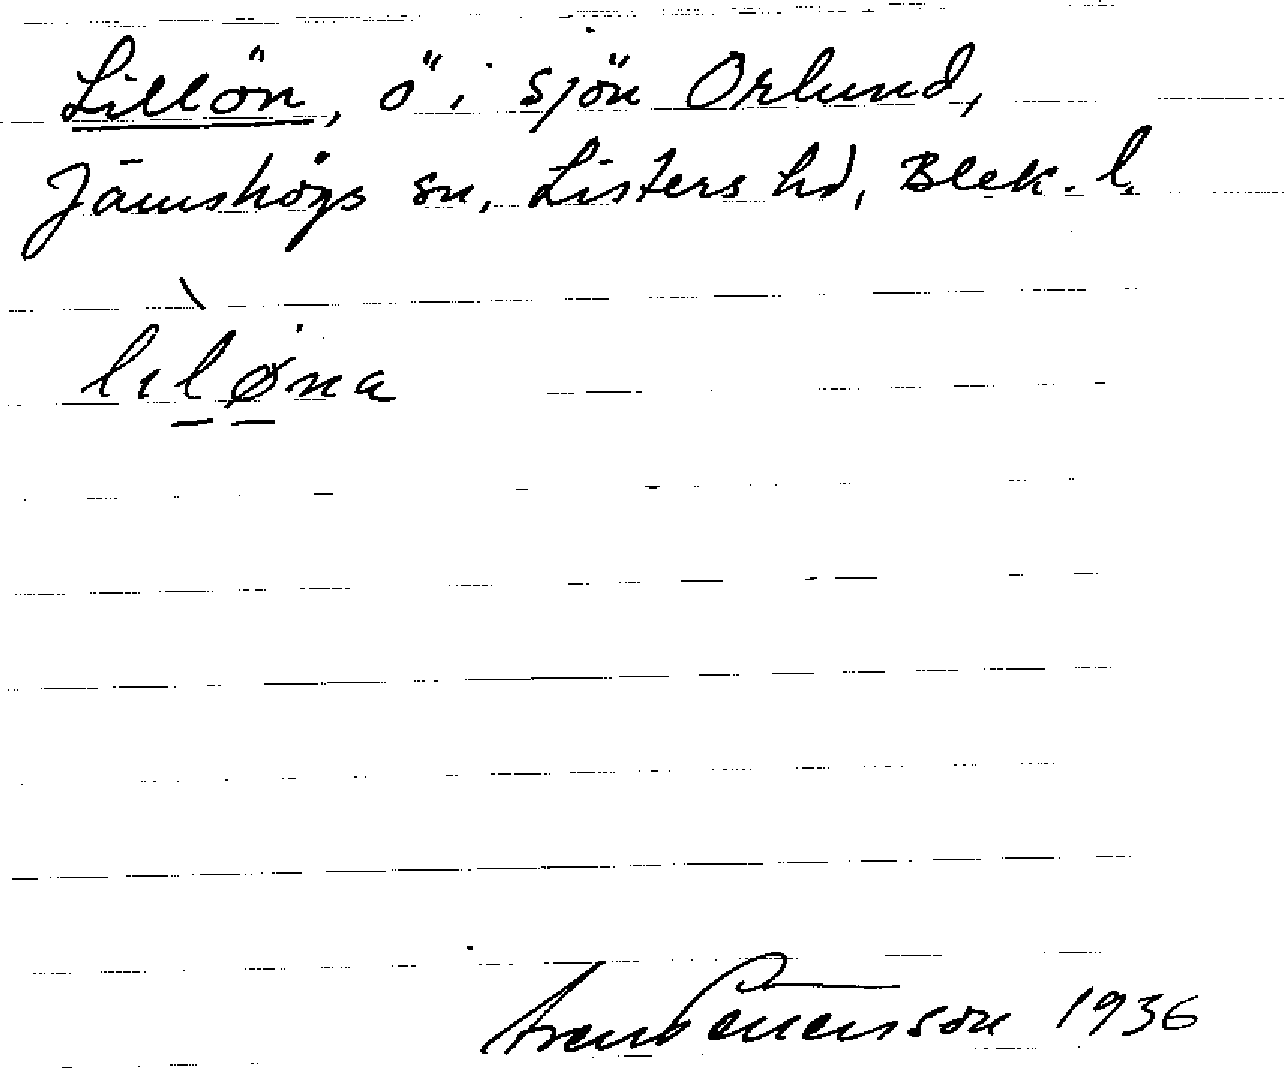 Lillön, ö i sjön Orlund,
Jämshögs sn, Listers hd, Blek. l.
lıløna
1936